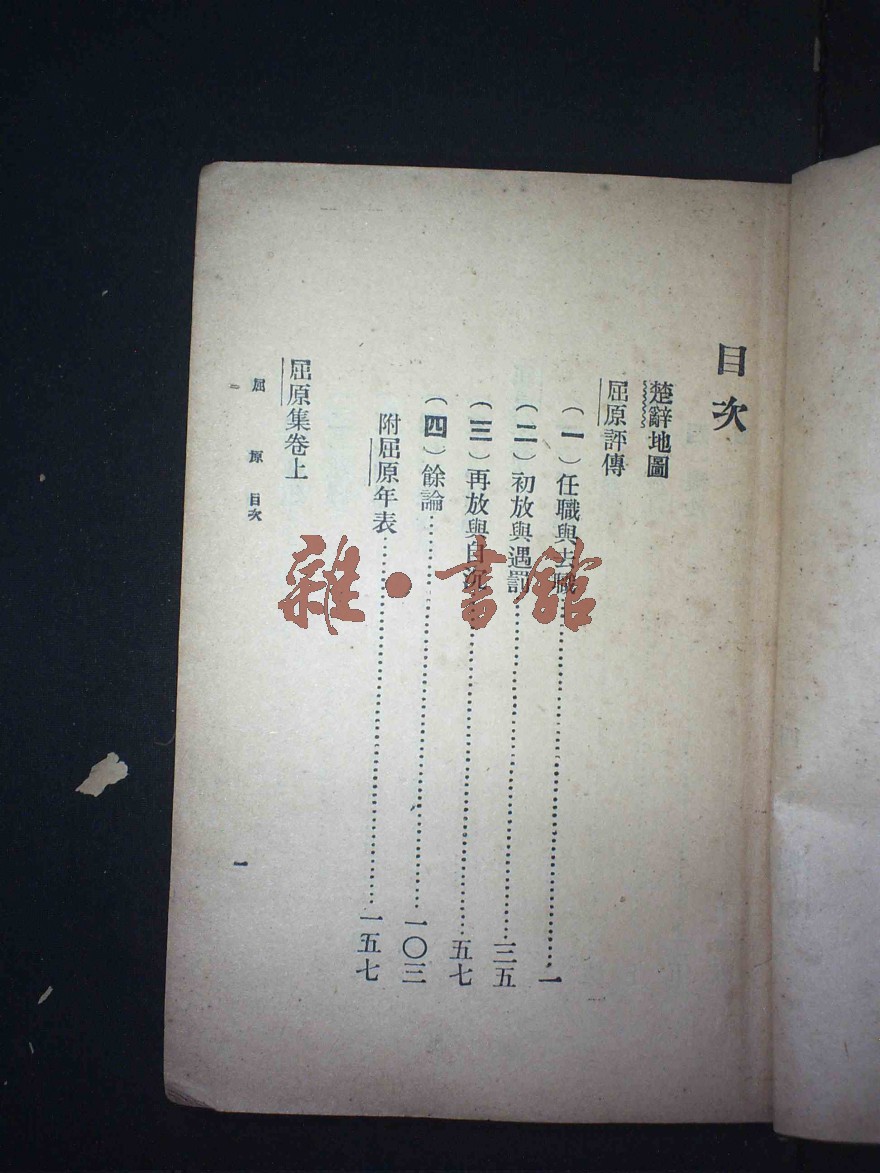 目次
楚辭地圖
屈原評傳
（一）任職與去職……一
（二）初放與遇罰……三五
（三）再放與自沉……五七
（四）餘論……一〇三
附屈原年表……一五七
屈原集卷上
屈原 目次
一
雜·書館